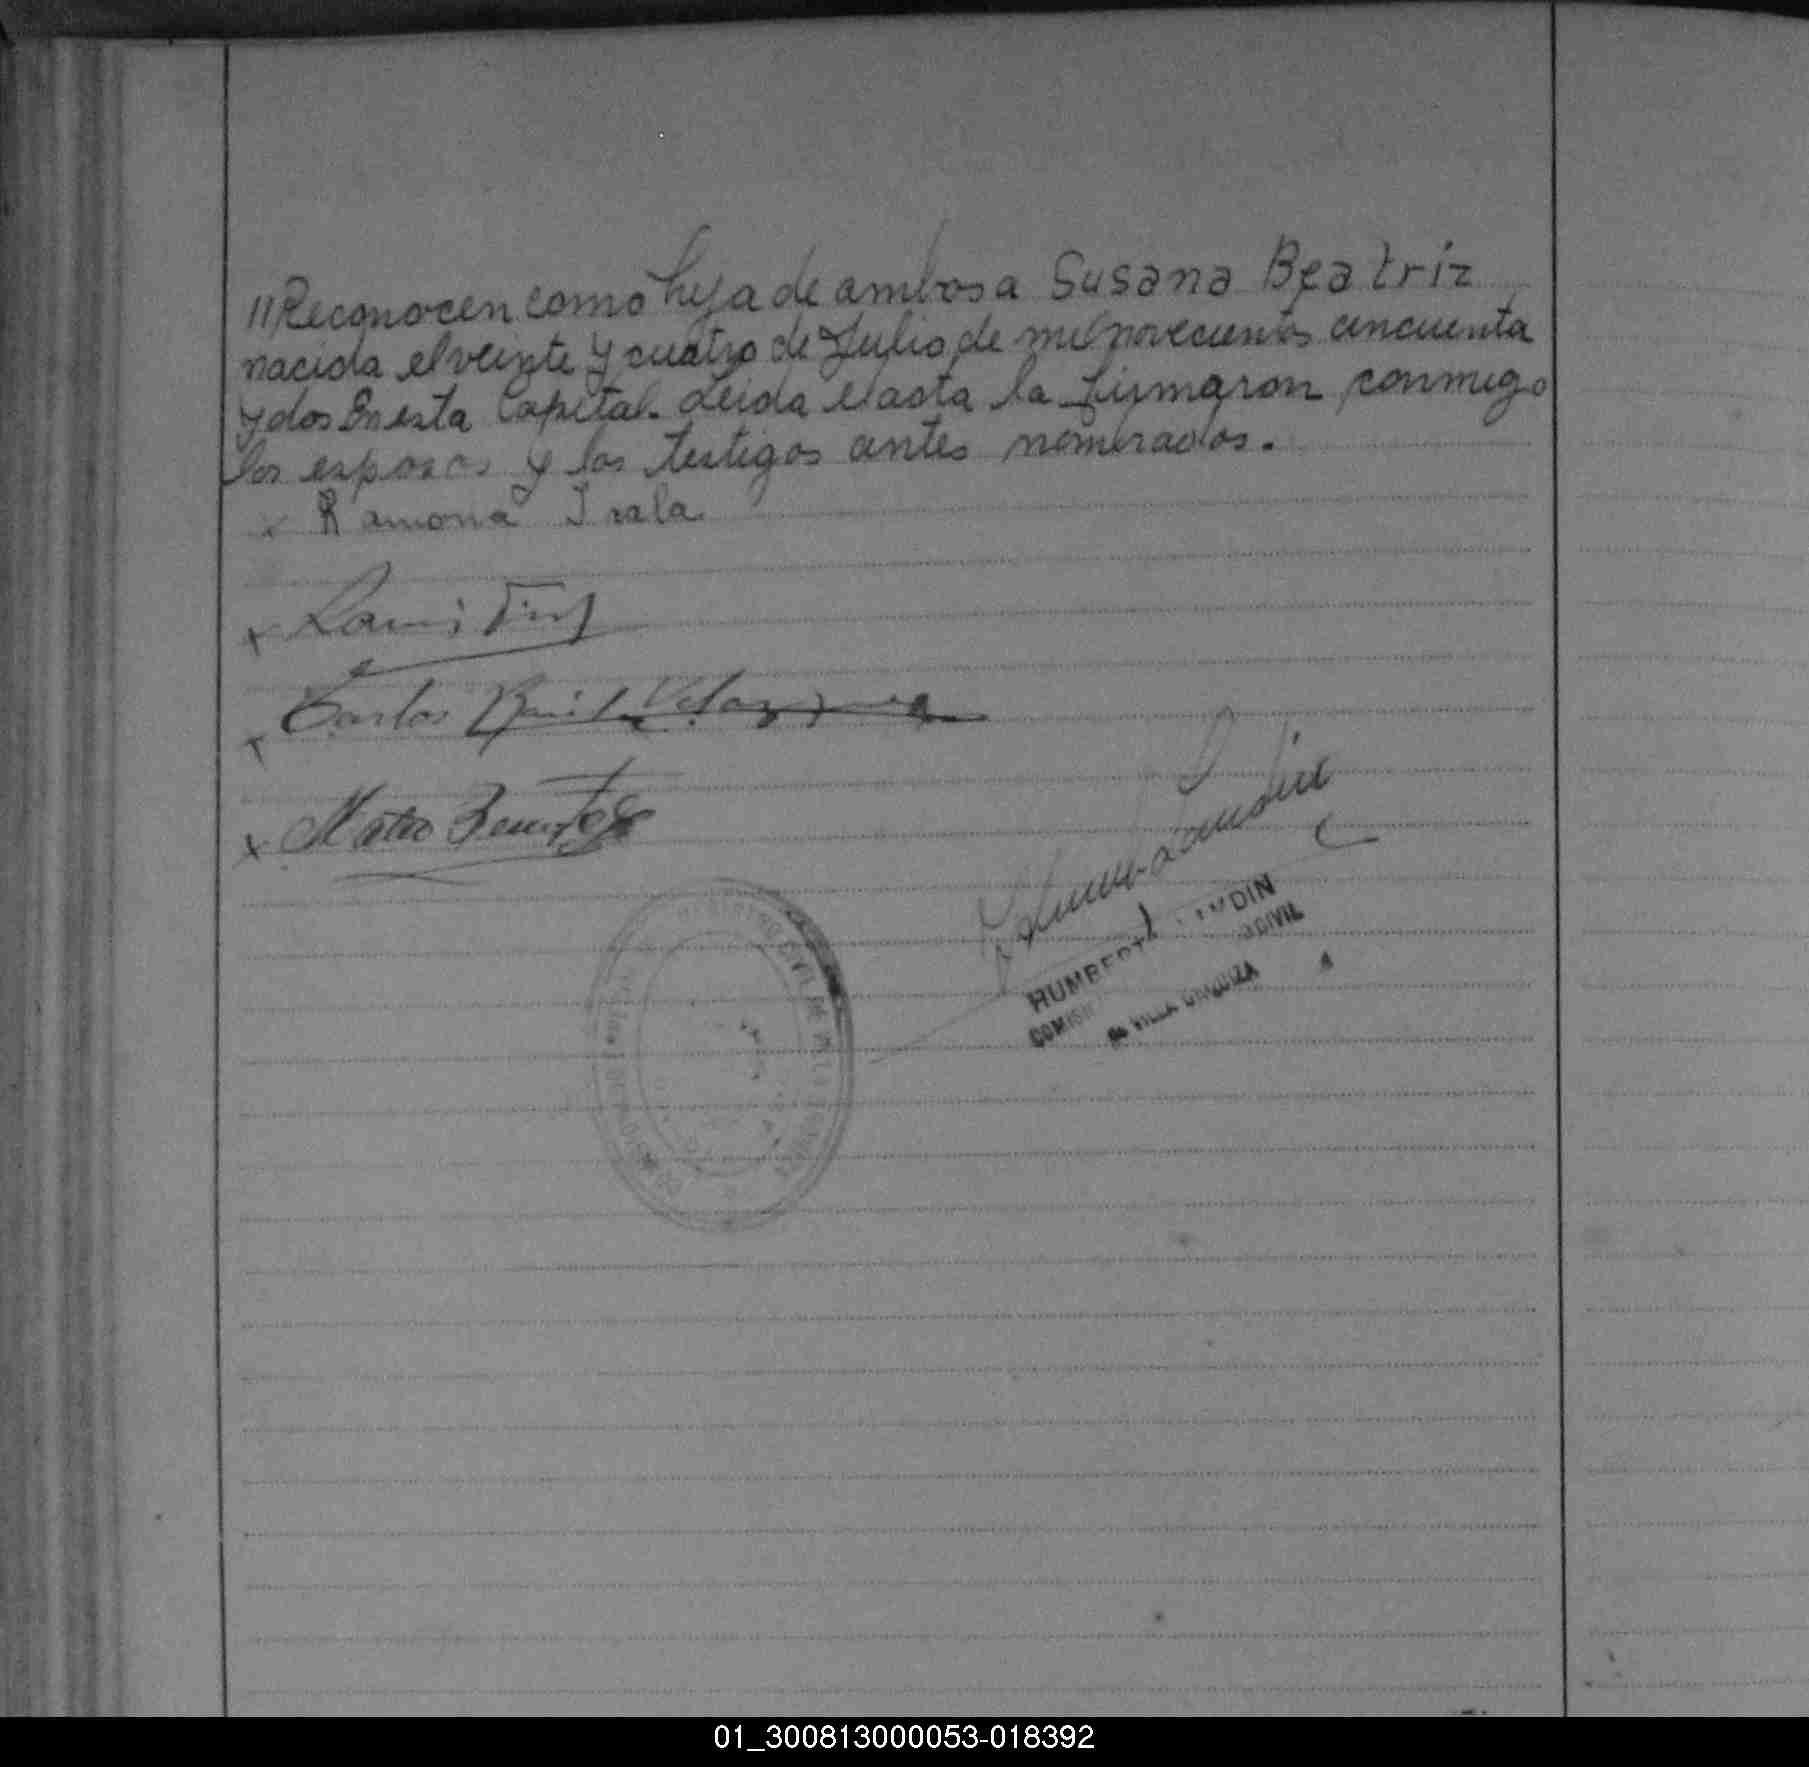 11 Reconocen como hija de ambos a Susana Beatriz
nacida el veinte y cuatro de Julio de mil novecientos cincuenta
y dos En esta Capital. Leida el acta la firmaron conmigo
los esposos y los testigos antes nombrados.
x Ramona Irala
x
x Carlos Raúl Velazquez
x Mateo Benitez
Humberto Landin
HUMBERTO LANDIN
CIVIL
VILLA
REGISTRO CIVIL DE
01_300813000053-018392